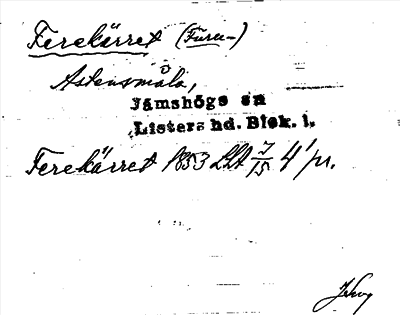 Ferekärret (Furu-)
Astensmåla,
Jämshögs sn
Listers hd. Blek. l.
Ferekärret 1853 LSA 7/15 4' pr.